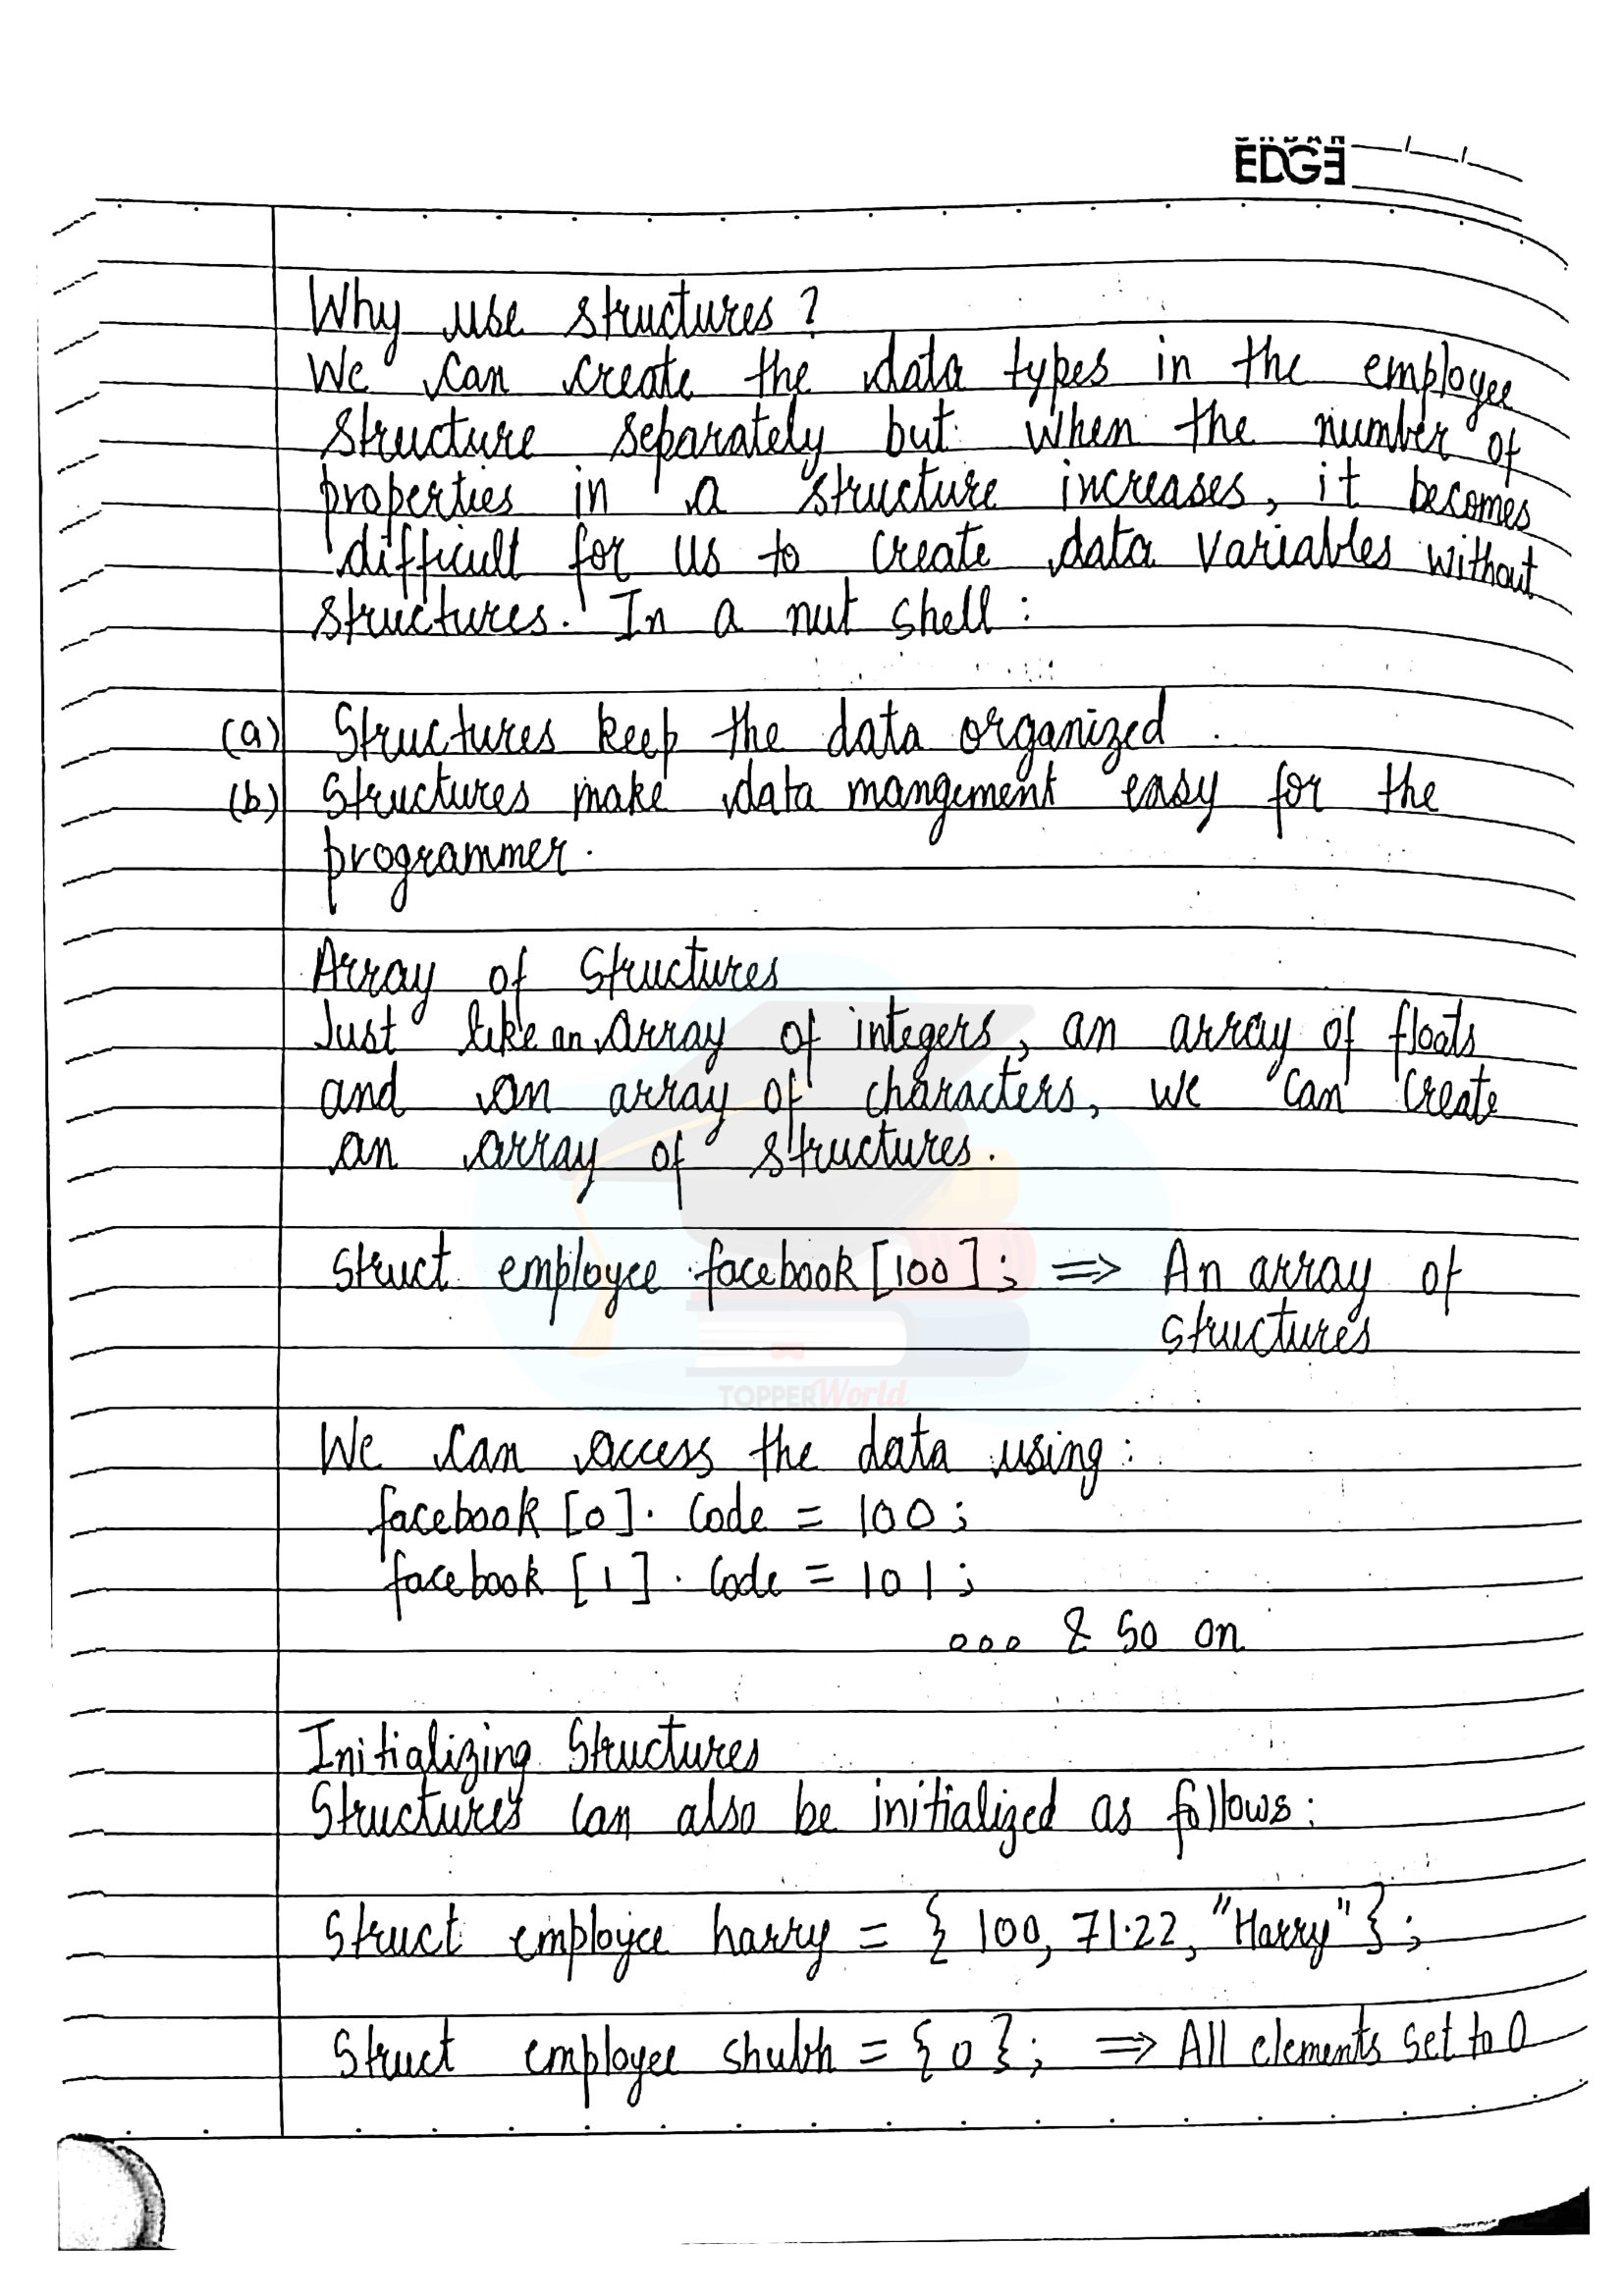 URBAN
EDGE
Why use structures?
We can create the data types in the employee
structure separately but when the number of
properties in a structure increases, it becomes
difficult for us to create data variables without
structures. In a nut shell:
(a) Structures keep the data organized.
(b) Structures make data mangement easy for the
programmer.
Array of Structures
Just like an array of integers, an array of floats
and an array of characters, we can create
an array of structures.
struct employee facebook[100]; ⇒ An array of
structures
TOPPERWorld
We can access the data using:
facebook[0].code = 100;
facebook[1].code = 101;
... & so on
Initializing Structures
Structures can also be initialized as follows:
Struct employee harry = {100, 71.22, "Harry"};
Struct employee shubh = {0}; ⇒ All elements set to 0